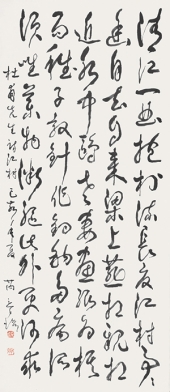 清江一曲抱村流長夏江村事事
幽自去自来梁上燕相親相
近水中鷗老妻畫紙為棋
局稚子敲針作釣鈎多病所
須唯藥物微軀此外更何求
杜甫先生詩江村